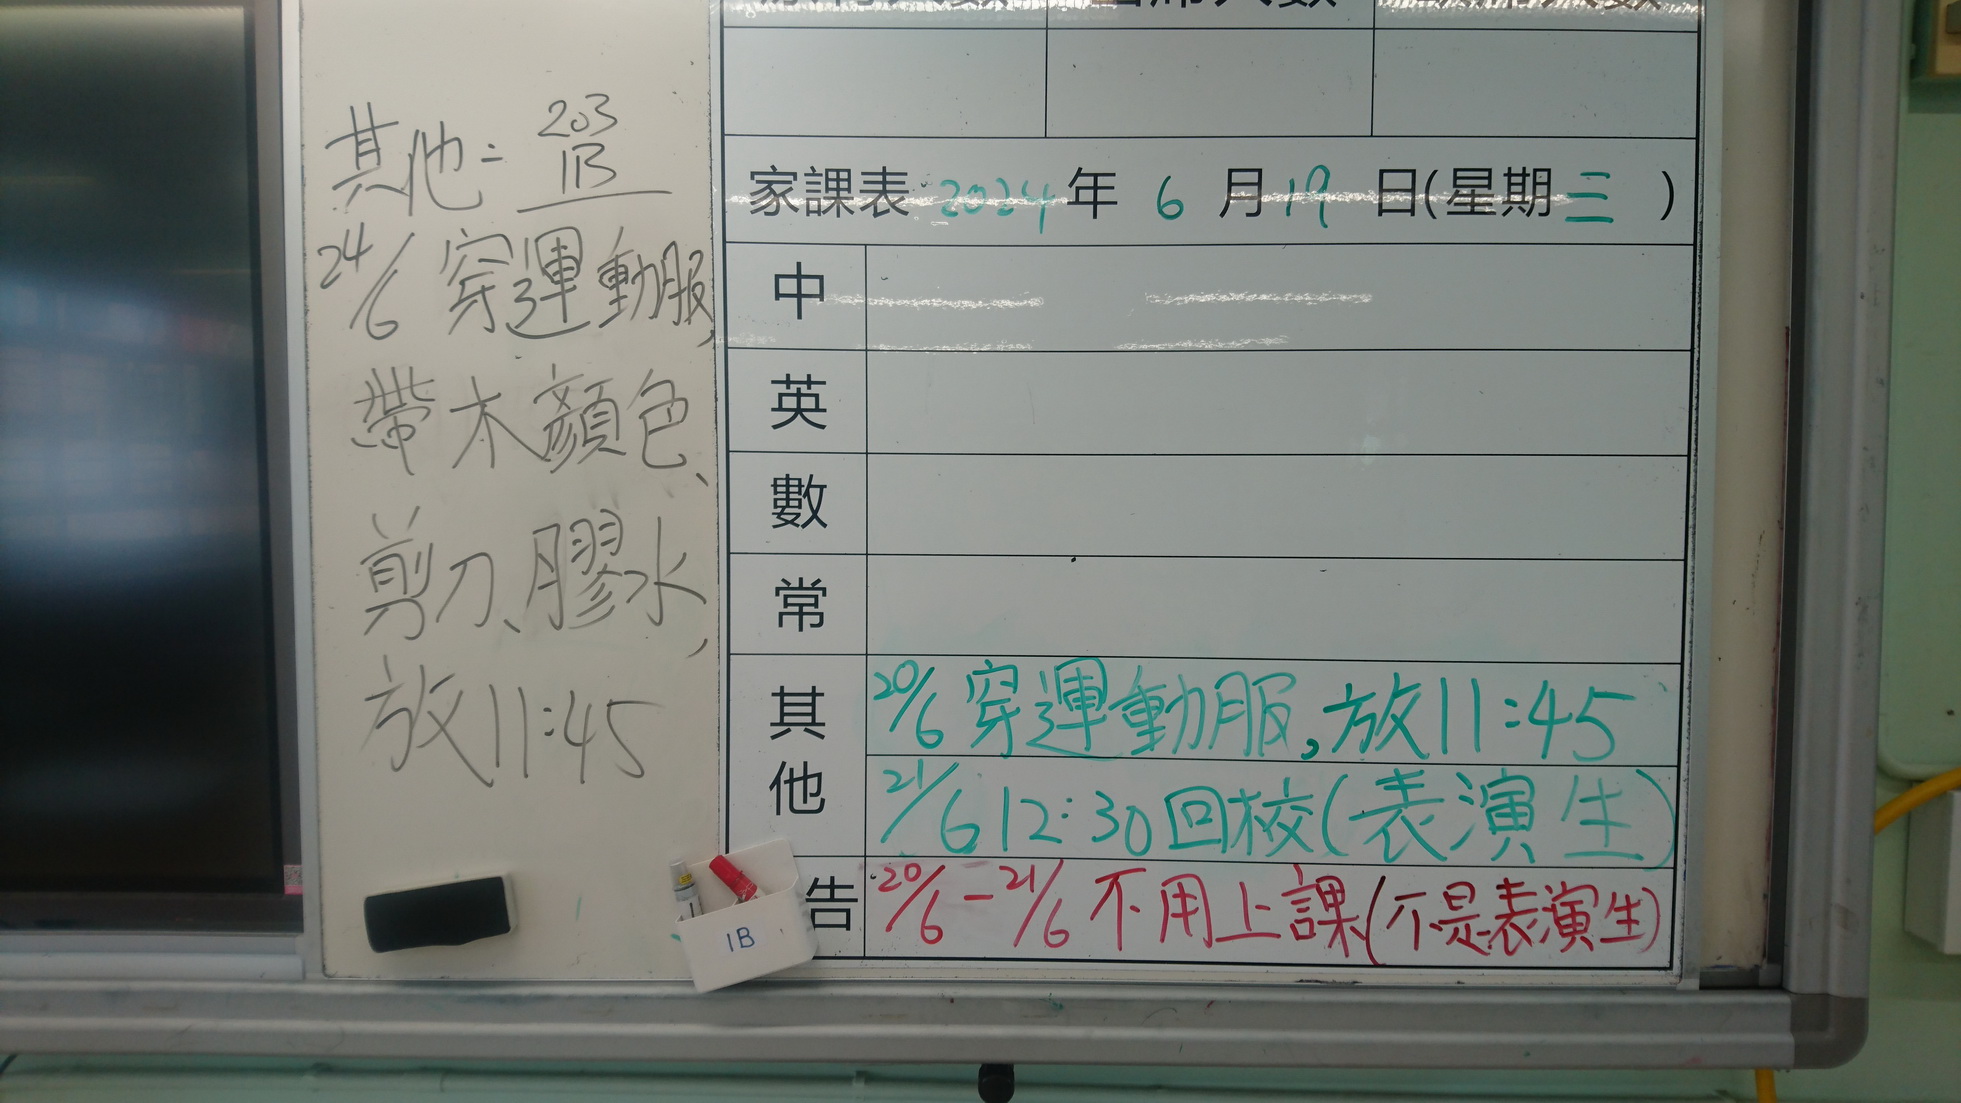 其他:
203
1B
24/6 穿運動服,
帶木顏色、
剪刀、膠水,
放11:45
家課表 2024 年 6 月 19 日(星期 三 )
中
英
數
常
其他
20/6 穿運動服,放11:45
21/6 12:30回校(表演生)
告
20/6-21/6 不用上課(不是表演生)
1B